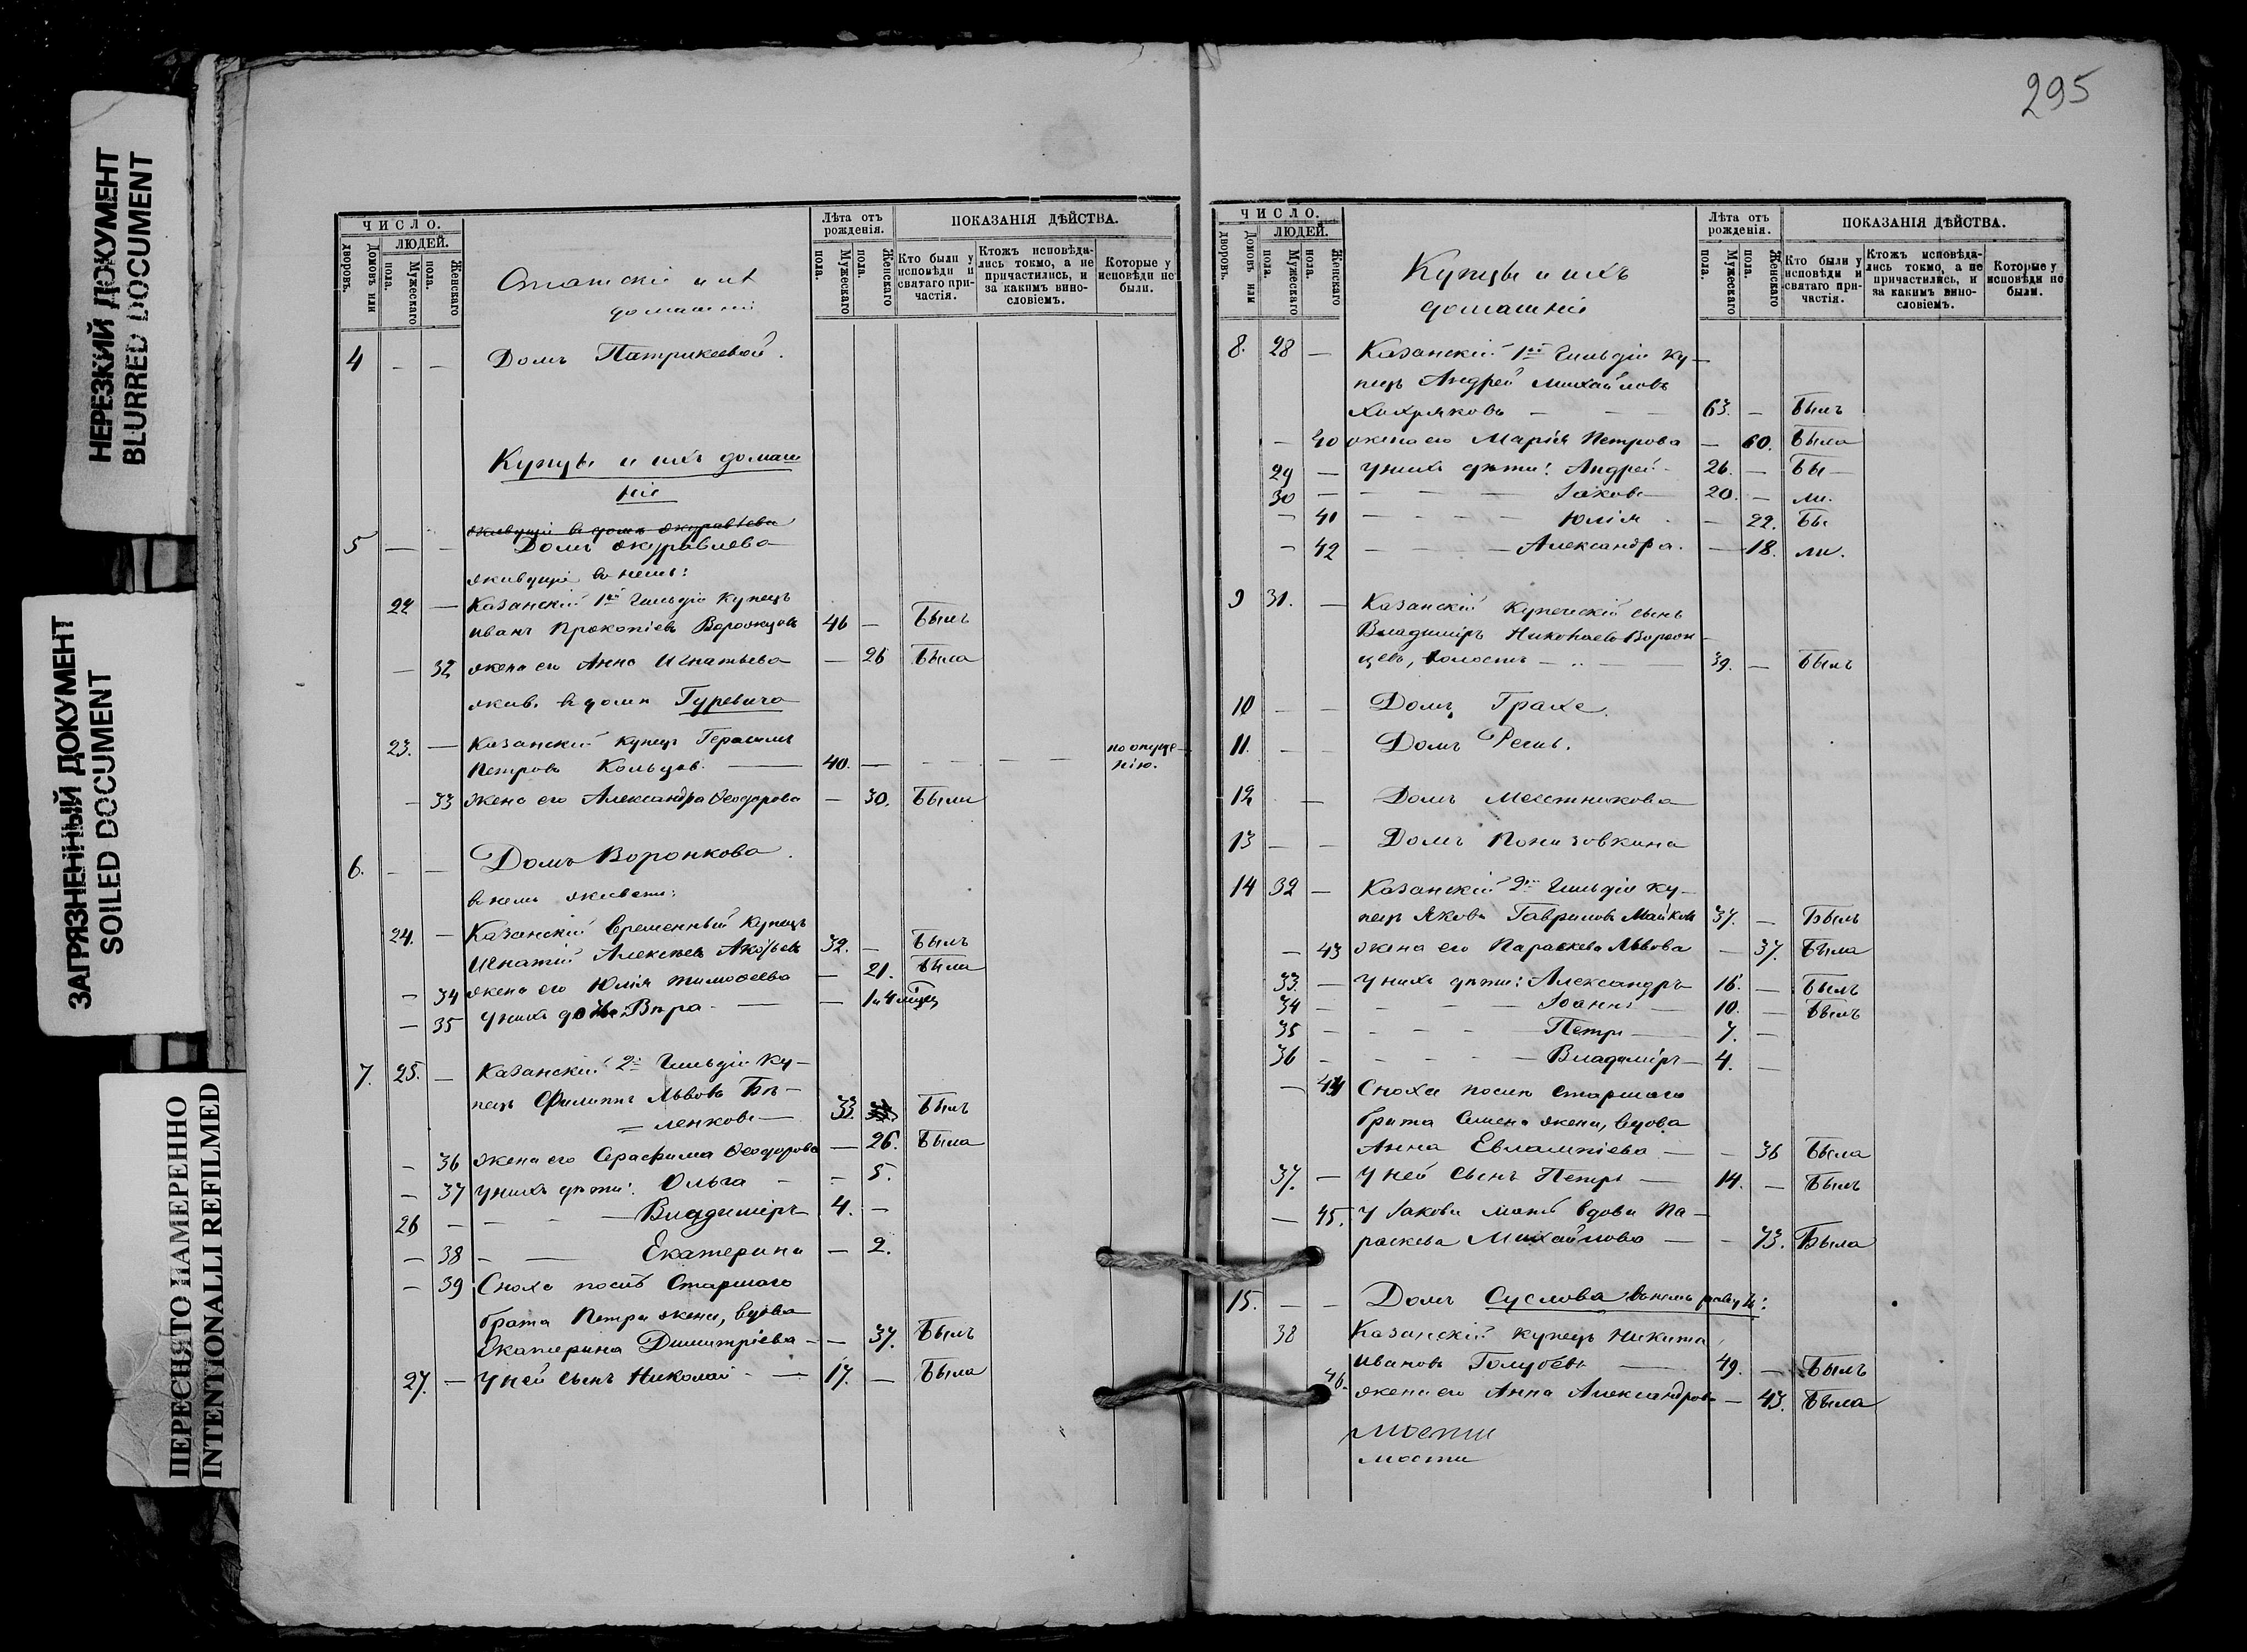 295
НЕРЕЗКИЙ ДОКУМЕНТ
BLURRED DOCUMENT
ЗАГРЯЗНЕННЫЙ ДОКУМЕНТ
SOILED DOCUMENT
ПЕРЕСНЯТО НАМЕРЕННО
INTENTIONALLI REFILMED
ЧИСЛО.
Домовъ или дворовъ.
ЛЮДЕЙ.
Мужескаго пола.
Женскаго пола.
Статскіе и их
домашніе
Лѣта отъ рожденія.
Мужескаго пола.
Женскаго пола.
ПОКАЗАНІЯ ДѢЙСТВА.
Кто были у исповѣди и святаго причастія.
Ктожъ исповѣдались токмо, а не причастились, и за какимъ винословіемъ.
Которые у исповѣди не были.
4 - - Домъ Патрикеевой.
Купцы и ихъ домаш
ніе
живущіе в домѣ Журавлева
5 — - Домъ Журавлева
живущіе в немъ:
22 — Казанскій 1ой Гильдіи Купецъ
Иванъ Прокопіевъ Воронцовъ 46 — Былъ
— 32 жена его Анна Игнатьева — 26 Была
жив. в домѣ Гуревича
23. — Казанскій купецъ Герасимъ
Петровъ Кольцов. — 40. — - - - — — по опуще-
нію.
- 33 Жена его Александра Ѳеодорова — 30. Была
6. - — Домъ Воронкова.
в немъ живетъ:
24. — Казанскій временный Купецъ
Игнатій Алексѣевъ 32. — Былъ
- 34 жена его Юлія Тимоѳеева — 21. Была
— 35 У нихъ дочь Вѣра — — 1 и 4 мѣсяц
7. 25. — Казанскій 2й Гильдіи Ку-
пецъ Филиппъ Львовъ Бѣ-
ленковъ — 33. Былъ
- 36 жена его Серафима Ѳеодорова — 26. Была
- 37 У нихъ дѣти: Ольга - - 5.
26 — — - — Владиміръ 4. —
- 38 - — Екатерина — 2.
- 39 Сноха послѣ Старшаго
брата Петра жена, вдова
Екатерина Димитріева - — 37. Былъ
27. — У ней сынъ Николай - — 17. — Была
ЧИСЛО.
Домовъ или дворовъ.
ЛЮДЕЙ.
Мужескаго пола.
Женскаго пола.
Купцы и ихъ
домашніе
Лѣта отъ рожденія.
Мужескаго пола.
Женскаго пола.
ПОКАЗАНІЯ ДѢЙСТВА.
Кто были у исповѣди и святаго причастія.
Ктожъ исповѣдались токмо, а не причастились, и за какимъ винословіемъ.
Которые у исповѣди не были.
8. 28 — Казанскій 1ой Гильдіи Ку-
пецъ Андрей Михайловъ
Хохряковъ — — — 63. — Былъ
— 40 жена его Марія Петрова — 60. Была
29 — У нихъ дѣти: Андрей - 26. — Бы —
30 — — - — Іаковъ 20. — ли.
— 41 — - - - Юлія . — 22. Бы
- 42 - - - — Александра. — 18. ли.
9 31. — Казанскій Купеческій сынъ
Владиміръ Николаевъ Ворон-
цевъ, холостъ — — 39. — Былъ
10 — — Домъ Грахе.
11. — — Домъ
12 . — Домъ Местникова
13 — — Домъ Понизовкина
14 32 — Казанскій 2й Гильдіи Ку-
пецъ Яковъ Гавриловъ Майков 37. — Былъ
— 43 жена его Параскева Львова — 37. Была
33. — У нихъ дѣти: Александръ 16. — Былъ
34 - — - — Іоаннъ — 10. — Былъ
35 - — - - — Петръ — 7. —
36 - - - - — Владиміръ — 4. —
— 44 Сноха послѣ Старшаго
брата Семена жена, вдова
Анна Евлампіева — — 36 Была
37. — У ней Сынъ Петръ — 14. — Былъ
— 45. У Іакова мать вдова Па-
раскева Михайлова — - 73. Была
15. — — Домъ Суслова в немъ живутъ:
38 Казанскій купецъ Никита
Ивановъ Голубевъ — 49. — Былъ
46. жена его Анна Александрова — 43. Была
мости
мости